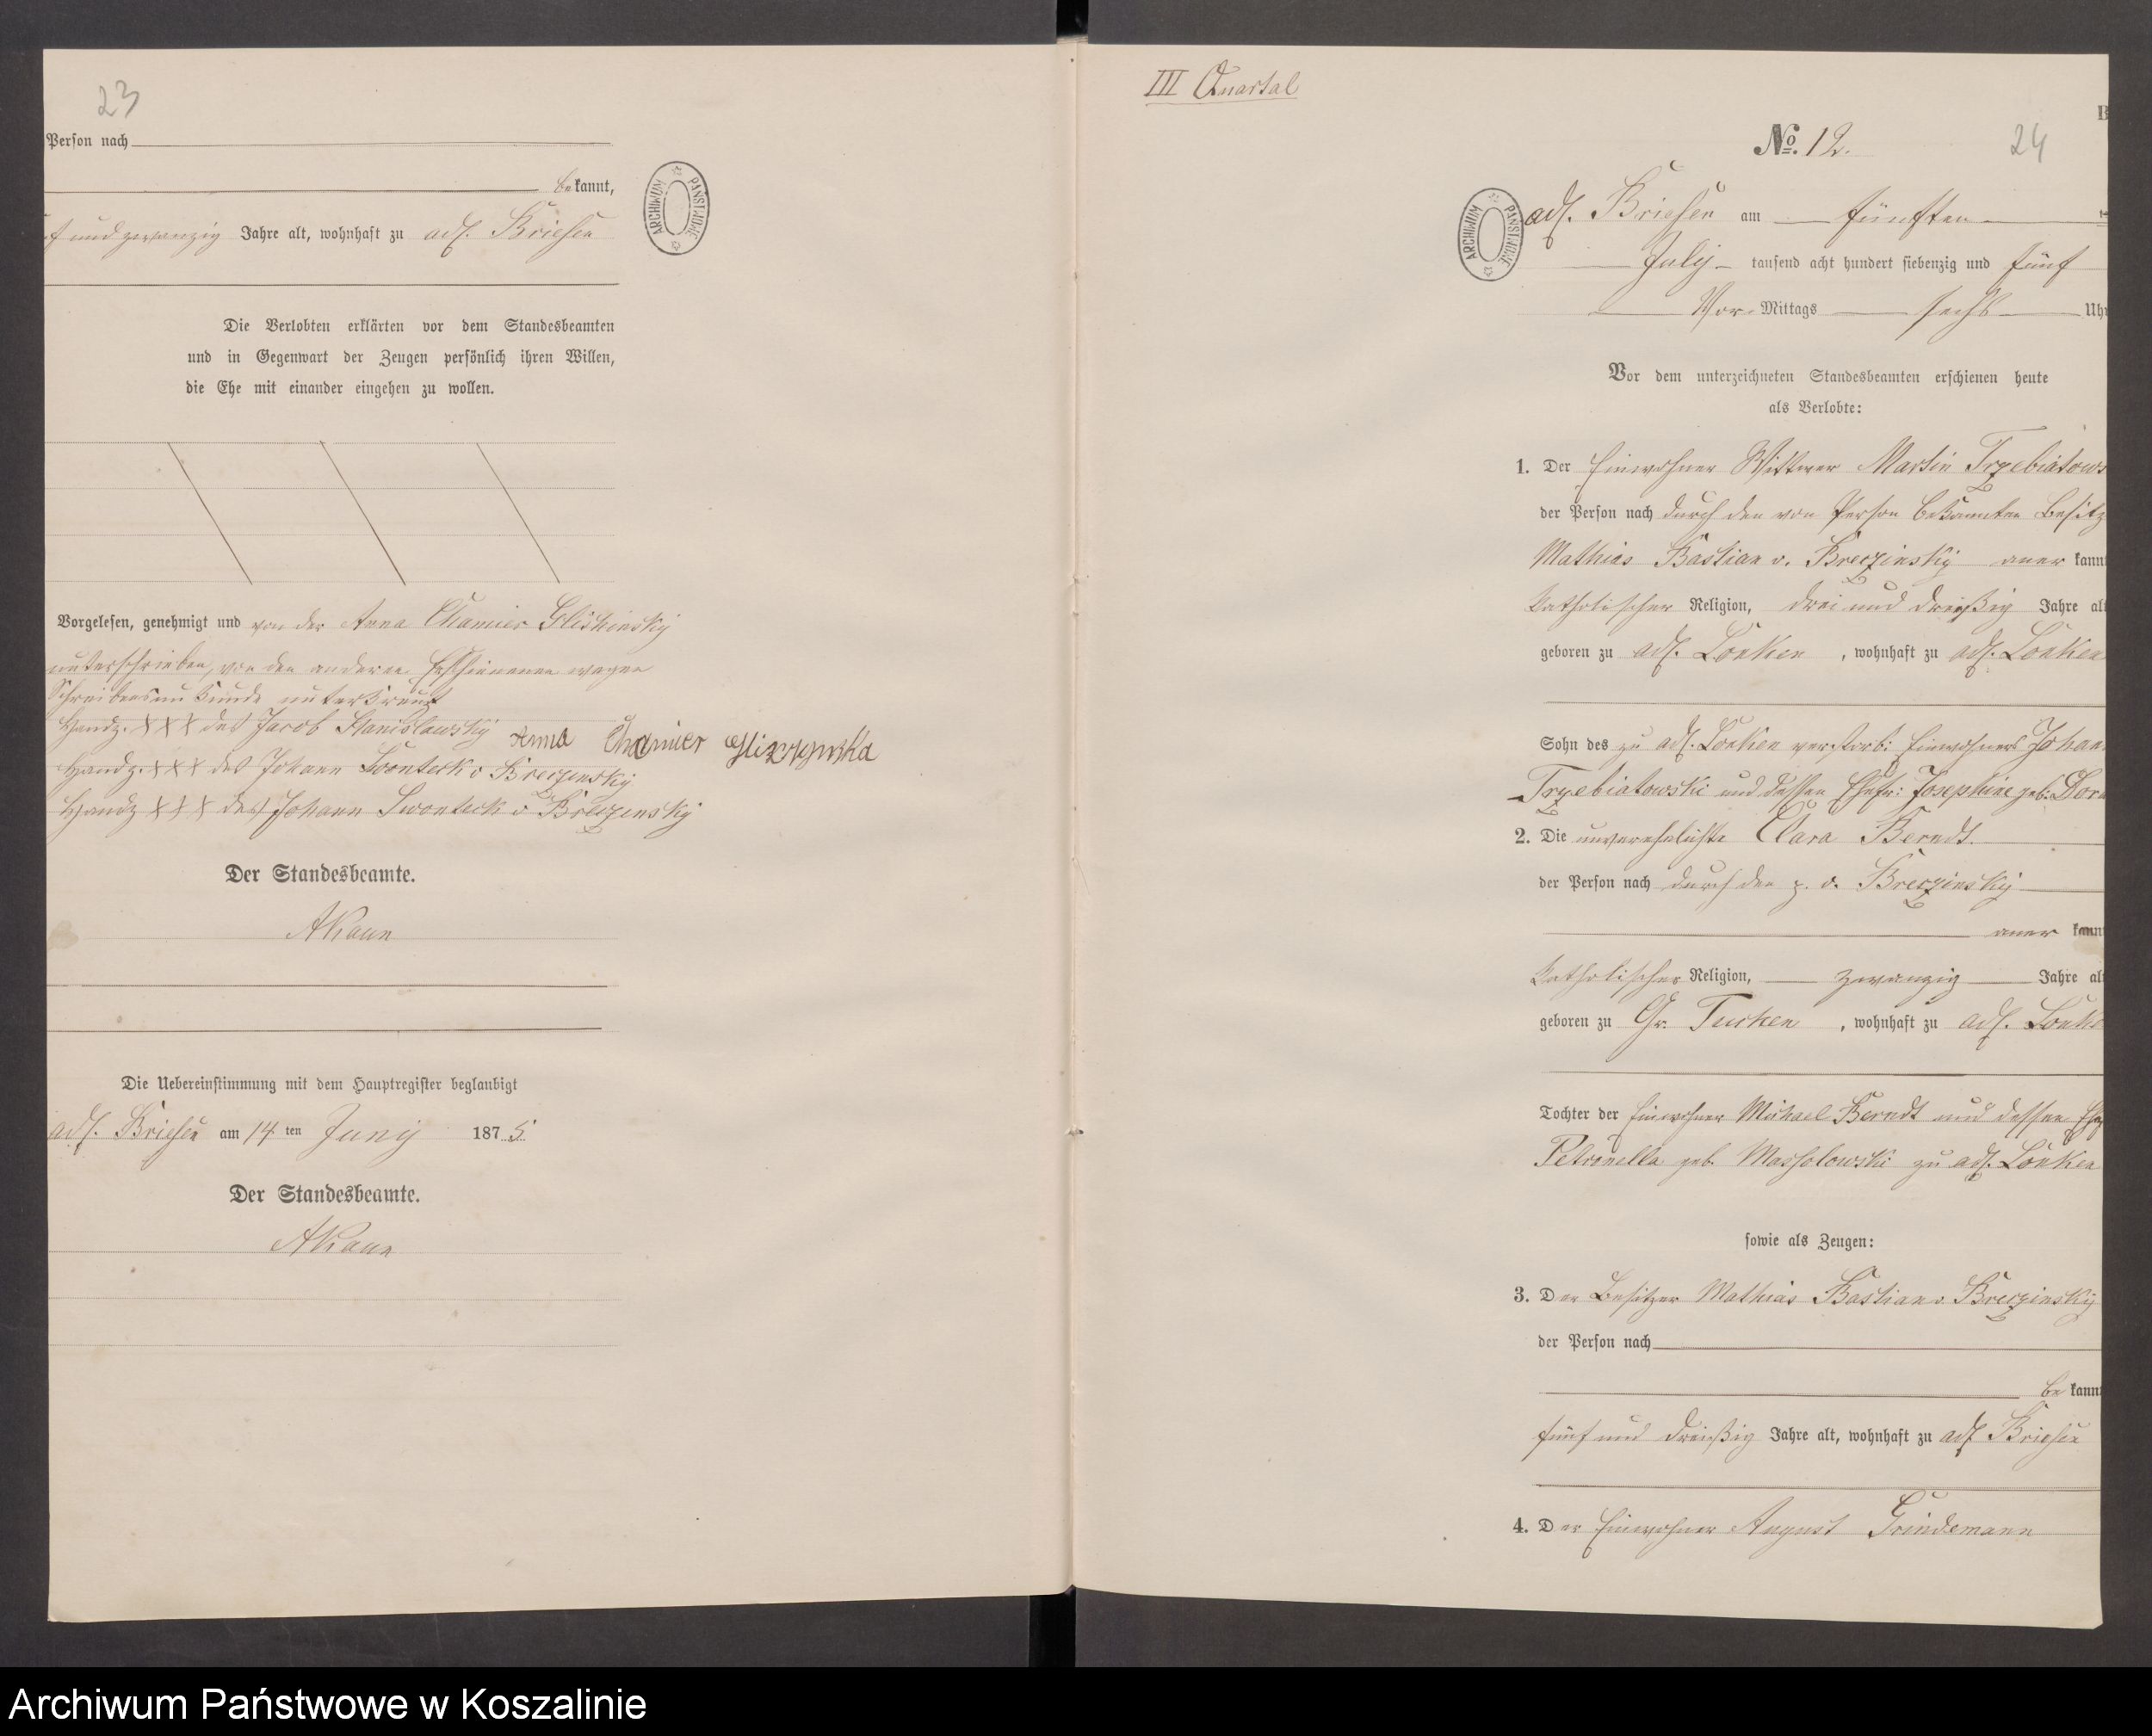 23
Person nach
bekannt,
f und zwanzig Jahre alt, wohnhaft zu adl. Briesen
ARCHIWUM PAŃSTWOWE
Die Verlobten erklärten vor dem Standesbeamten
und in Gegenwart der Zeugen persönlich ihren Willen,
die Ehe mit einander eingehen zu wollen.
Vorgelesen, genehmigt und von der Anna Chamier Glishinsky
unterschrieben, von den anderen Erschienenen wegen
Schreibensunkunde unterkreuzt
Handz. XXX des Jacob Stanislawsky Anna Chamier Gliszczynska
Handz. XXX des Johann v Breczinsky
Handz XXX des Johann Swonteck v Breczinsky
Der Standesbeamte.
AKaun
Die Uebereinstimmung mit dem Hauptregister beglaubigt
adl. Briesen am 14 ten Juny 1875
Der Standesbeamte.
AKaun
III Quartal
B
No. 12.
24
ARCHIWUM PAŃSTWOWE
adl. Briesen am fünften
July tausend acht hundert siebenzig und fünf
Vor Mittags sechs Uhr
Vor dem unterzeichneten Standesbeamten erschienen heute
als Verlobte:
1. Der Einwohner Wittwer Martin Trzebiatows
der Person nach durch den von Person bekannten Besitz
Mathias Bastian v. Breczinsky aner kannt
katholischer Religion, drei und dreißig Jahre alt
geboren zu adl. Lonken, wohnhaft zu adl. Lonken
Sohn des zu adl. Lonken verstorb: Einwohners Johann
Trzebiatowski und dessen Ehefr: Josephine geb:
2. Die unverehelichte Clara Berndt.
der Person nach durch den p. v. Breczinsky
aner kannt
katholischer Religion, zwanzig Jahre alt
geboren zu Gr. Tuchen, wohnhaft zu adl. Lonke
Tochter der Einwohner Michael Berndt und dessen Ehef
Petronella geb. Massolowski zu adl. Lonken
sowie als Zeugen:
3. Der Besitzer Mathias Bastian v. Breczinsky
der Person nach
be kannt
fünf und dreißig Jahre alt, wohnhaft zu adl Briesen
4. Der Einwohner August Grindemann
Archiwum Państwowe w Koszalinie